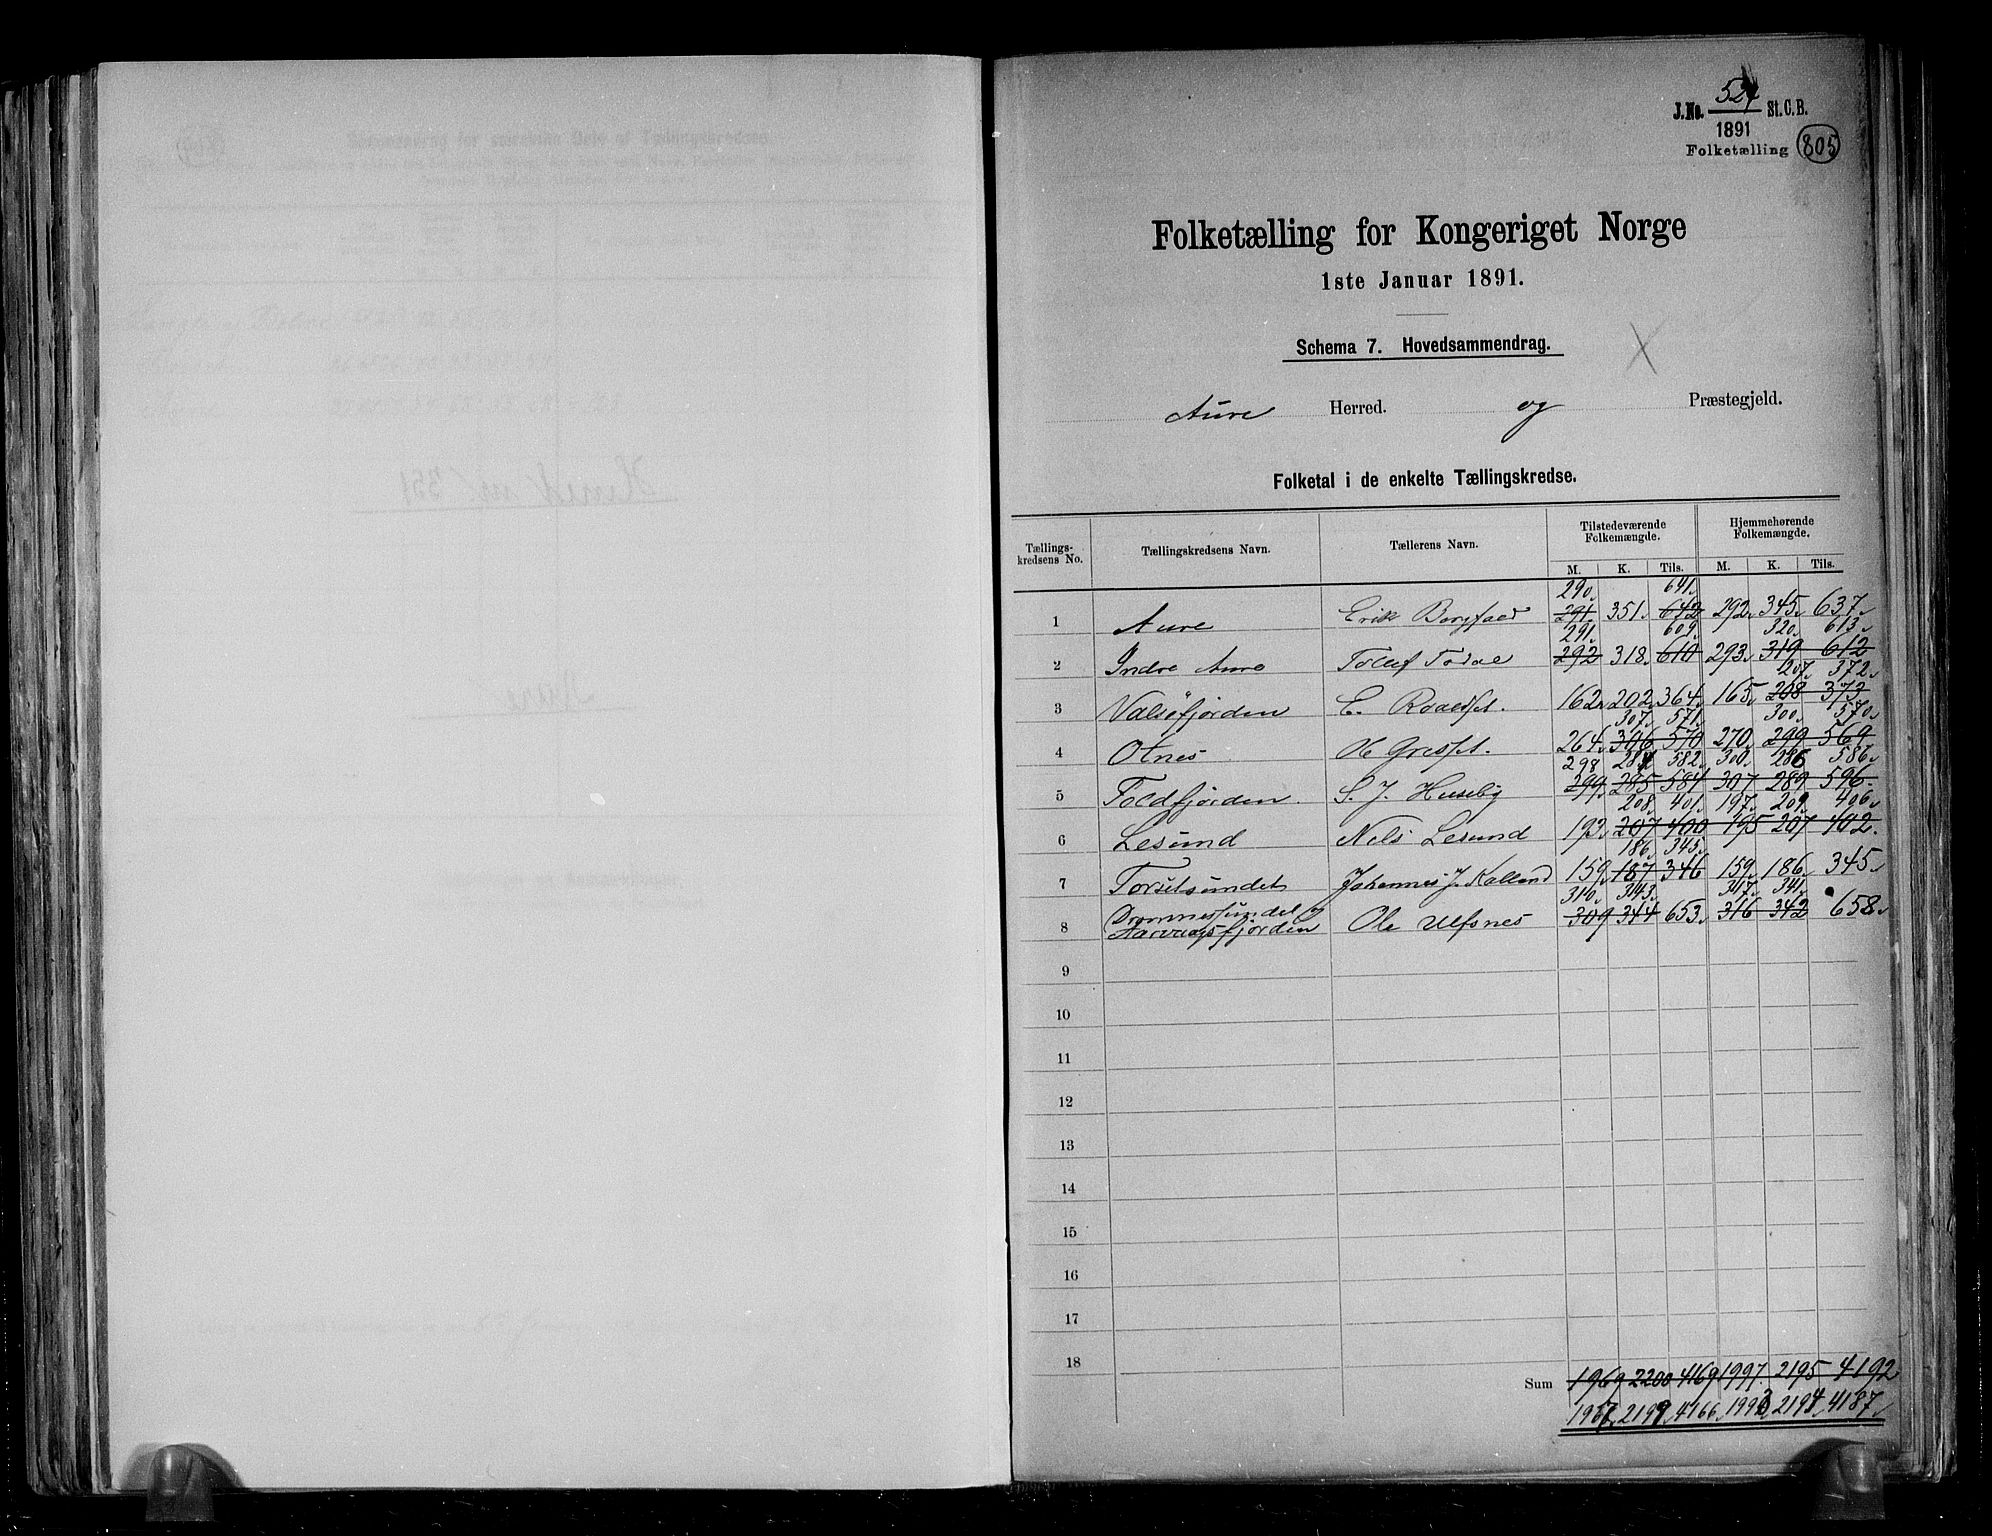 J.No. 524 St.C.B.
1891
Folketælling 805
Folketælling for Kongeriget Norge
1ste Januar 1891.
Schema 7. Hovedsammendrag.
Aure Herred. og Præstegjeld.
Folketal i de enkelte Tællingskredse.
Tællingskredsens No. Tællingskredsens Navn. Tællerens Navn. Tilstedeværende Folkemængde. Hjemmehørende Folkemængde.
M. K. Tils. M. K. Tils.
290. 641.
1 Aure Erik 291. 351. 642 292. 345. 637.
291. 609. 320. 613.
2 Indre Aure 292 318. 610 293. 319 612
207. 372.
3 Valsøfjorden E. 162. 202. 364. 165. 208 373
307. 571. 300. 570.
4 Otnes 264. 306 570 270. 299 569
298 284 582. 300. 286 586.
5 Foldfjorden. S. J. Huseby 299. 285 584 307 289 596.
208. 401. 197. 209. 406.
6 Lesund Nels Lesund 193. 207 400 195 207 402.
186. 345.
7 Torsetsundet Johannes J. Kalland 159. 187 346 159. 186. 345.
310. 343. 317. 341.
8 Dromnessundet og Aarvaagsfjorden Ole Ulfsnes 309 344 653. 316 342 658.
9
10
11
12
13
14
15
16
17
18
Sum 1969 2200 4169 1997. 2195 4192
1967. 2199. 4166. 1993. 2194. 4187.